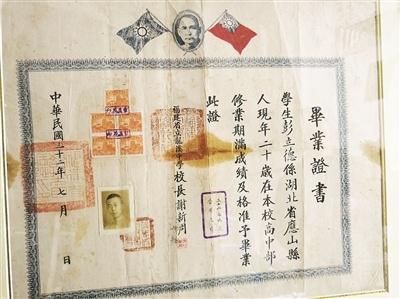 畢業證書
學生彭立德係湖北省應山縣
人現年二十歲在本校高中部
修業期滿成績及格准予畢業
此證
福建省立龍溪中學校長謝新周
中華民國三十二年七月 日